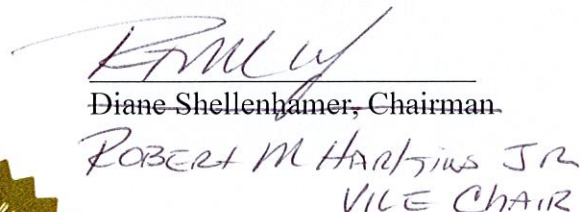 Diane Shellenhamer, Chairman
ROBERT M HARKINS JR
VICE CHAIR